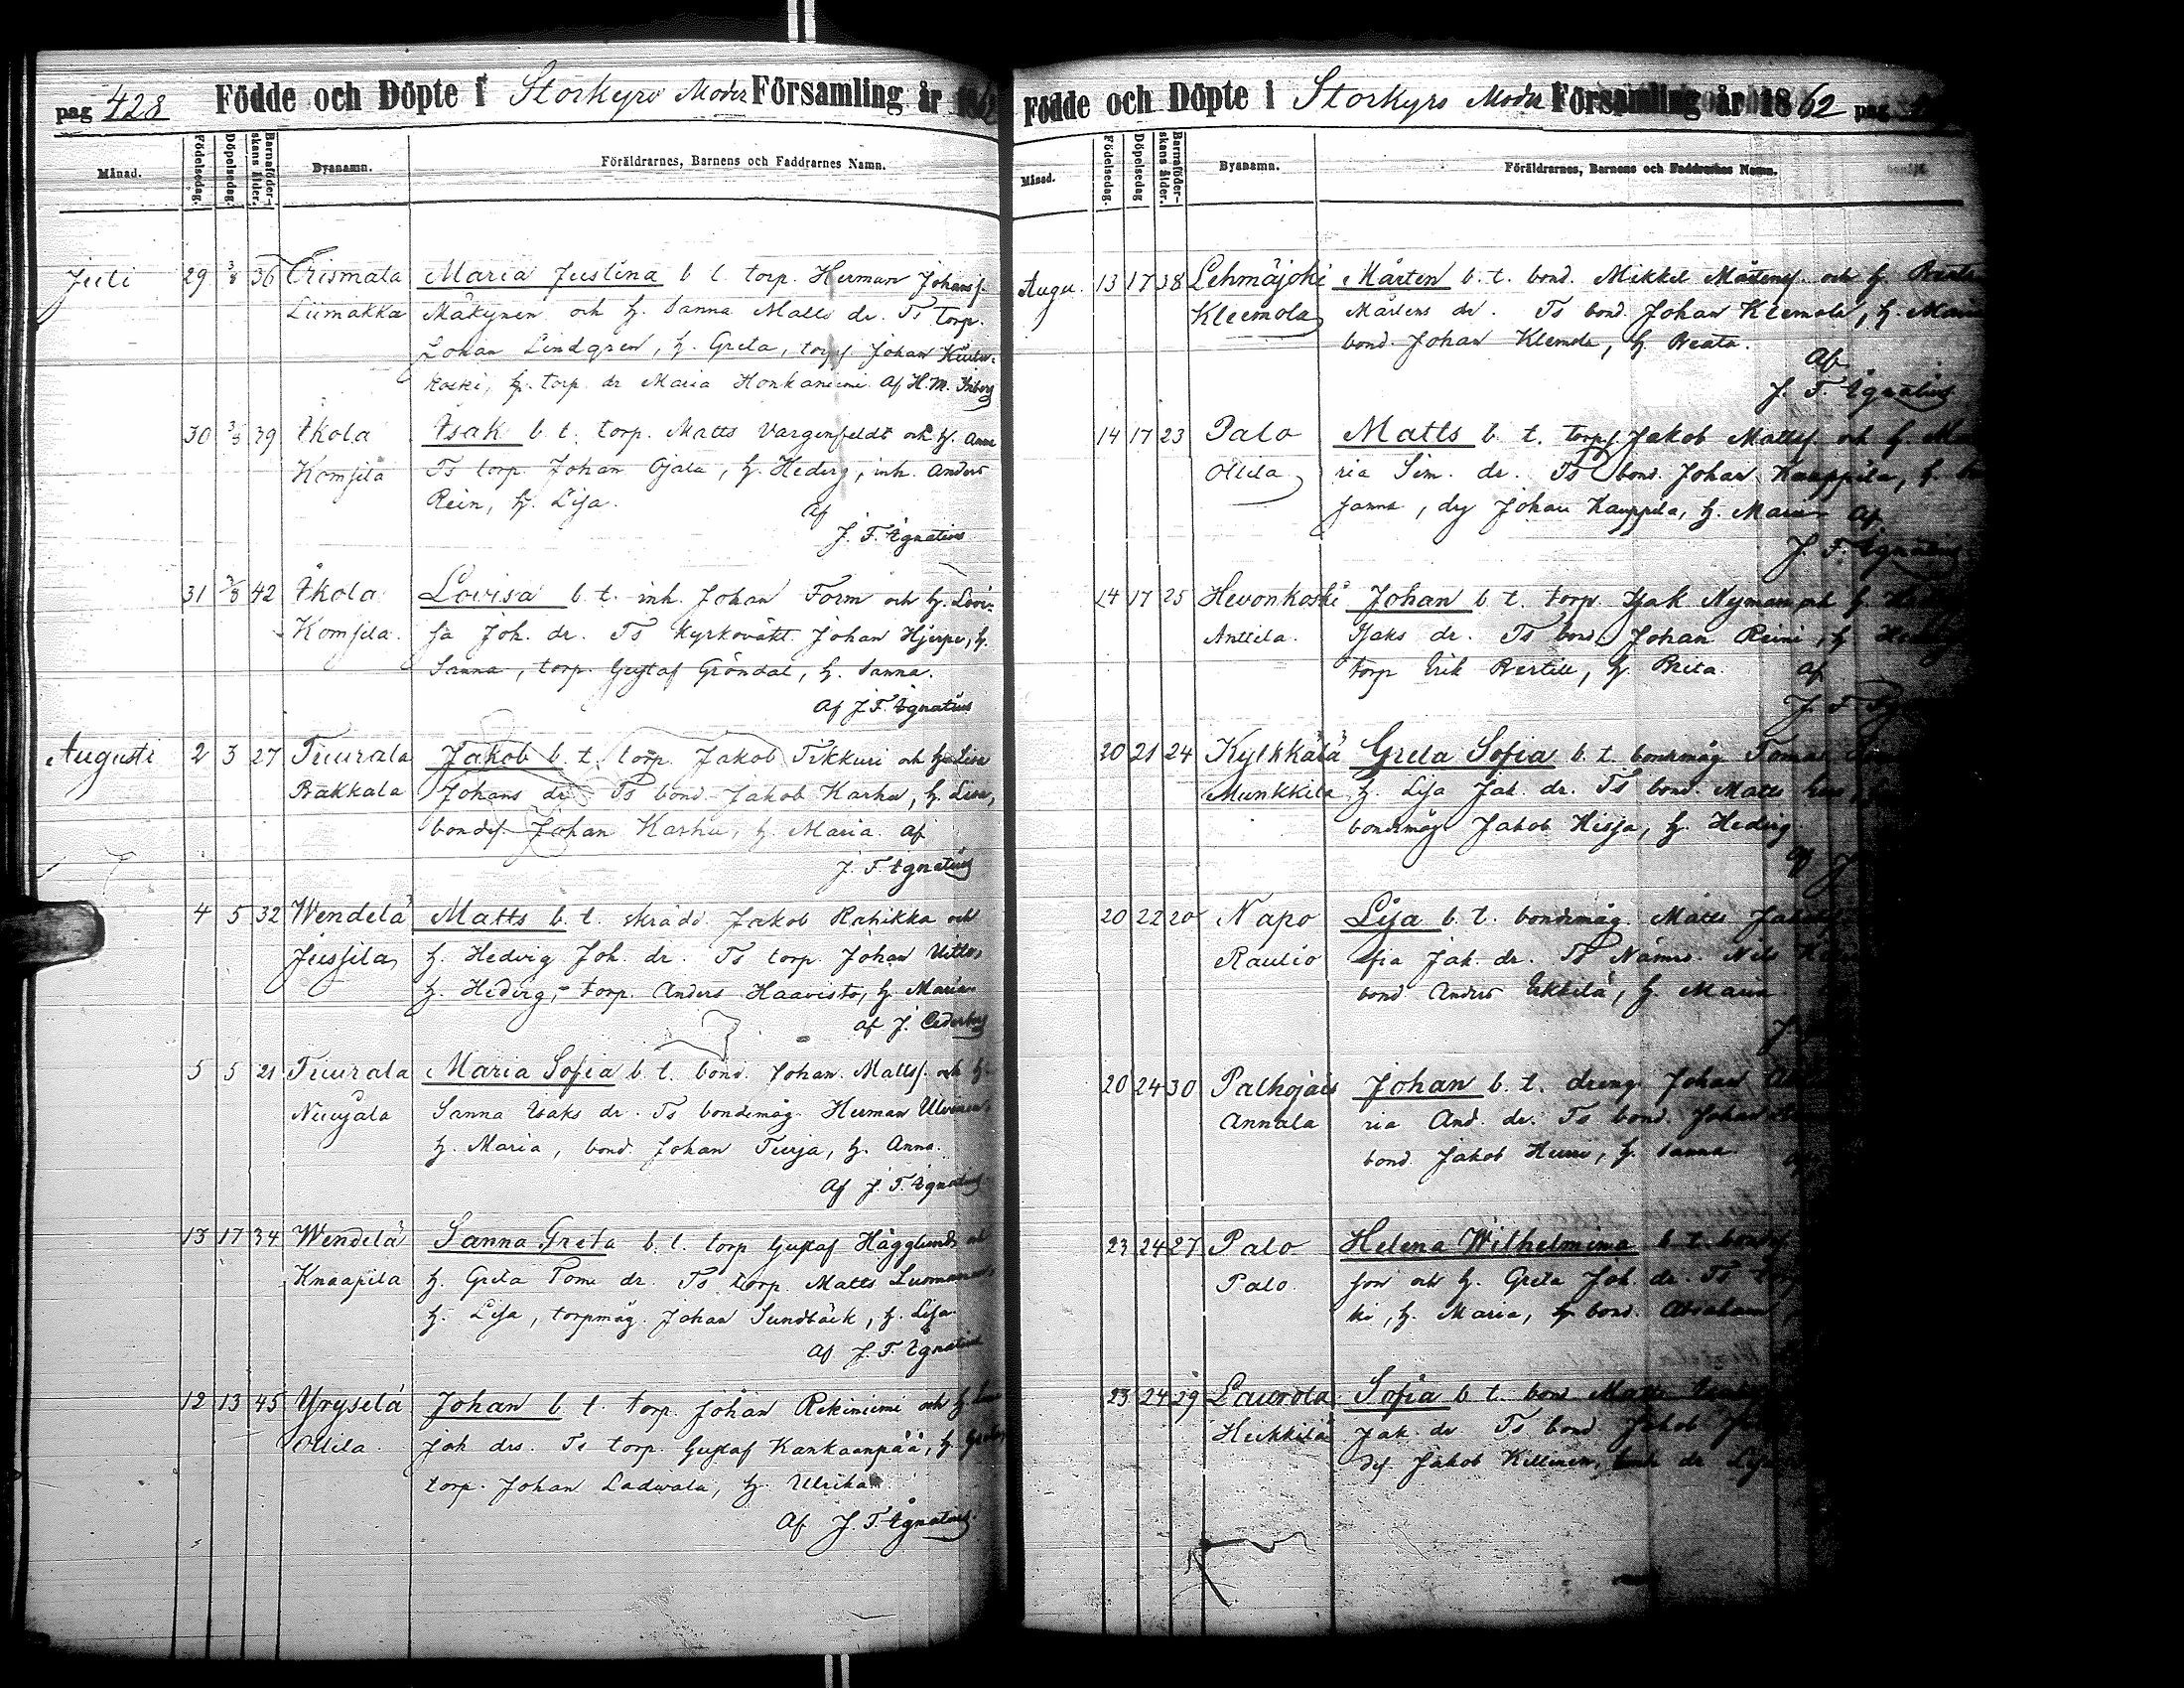 pag 428 Födde och Döpte i Storkyro Moder Församling år 1862
Månad. Födelsedag. Döpelsedag. Barnaföderskans ålder. Byanamn. Föräldrarnes, Barnens och Faddrarnes Namn.
Juli 29 3/8 36 Orismala Maria Justina b. t. torp. Herman Johans s.
Liimakka Mäkynen och h. Sanna Matts dr. Ts torp.
Johan Lindgren, h. Greta, torps Johan
koski, torp. dr Maria Honkaniemi Af H. M.
30 3/8 39 Ikola Isak b. t. torp. Matts Vargenfeldt och h. Anna
Komsila Ts torp. Johan Ojala, h. Hedvig, inh. Anders
Rein, h. Lisa. Af
J. F. Ignatius
31 3/8 42 Ikola Lovisa b. t. inh. Johan Form och h. Lovi-
Komsila. sa Joh. dr. Ts Kyrkoväkt. Johan Hjerpe, h.
Sanna, torp. Gustaf Gröndal, h. Sanna.
Af J. F. Ignatius
Augusti 2 3 27 Tuurala Jakob b. t. torp. Jakob Tikkuri och h. Lisa
Pakkala Johans dr Ts bond. Jakob Karhu, h. Lisa,
bondes. Johan Karhu, h. Maria. af
J. F. Ignatius
4 5 32 Wendelä Matts b. t. skrädd. Jakob Rahikka och
Jussila h. Hedvig Joh. dr. Ts torp. Johan Uitto,
h. Hedvig, torp. Anders Haavisto, h. Maria
af J. Cederberg
5 5 21 Tuurala Maria Sofia b. t. bond. Johan Matts s. och h.
Niuyala Sanna Isaks dr. Ts bondemåg. Herman
h. Maria, bond. Johan Turja, h. Anna.
Af J. F. Ignatius
13 17 34 Wendelä Sanna Greta b. t. torp Gustaf Hägglund och
Knaapila h. Greta Tom. dr. Ts torp. Matts
h. Lisa, torpmåg. Johan Sundbäck, h. Lisa.
Af J. F. Ignatius
12 13 45 Yryselä Johan b. t. torp. Johan Rekiniemi och h.
Ollila. Joh. drs. Ts torp. Gustaf Kankaanpää, h. Greta,
torp. Johan Ladwala, h. Ulrika.
Af J. F. Ignatius.
Födde och Döpte i Storkyro Moder Församling år 1862 pag
Månad. Födelsedag. Döpelsedag Barnaföderskans ålder. Byanamn. Föräldrarnes, Barnens och Faddrarnes Namn.
Augu. 13 17 38 Lehmäjoki Mårten b. t. bond. Mikkel Mårtens s. och h. Beata
Kleemola Mårtens dr. Ts bond. Johan Klemola, h. Maria
bond. Johan Klemola, h. Beata.
Af
J. F. Ignatius
14 17 23 Palo Matts b. t. torps. Jakob Matts s. och h. Ma
Ollila ria Sim. dr. Ts bond. Johan Kauppila, h.
sanna, drg Johan Kauppila, h. Maria Af
J. F. Ignatius
14 17 25 Hevonkoski Johan b. t. torp. Isak Nyman och h.
Anttila. Isaks dr. Ts bond. Johan Reini, h. Hedvig
torp Erik Bertill, h. Brita. af
J. F.
20 21 24 Kylkkälä Greta Sofia b. t. bondemåg Tomas
Munkkila h. Lisa Jak. dr. Ts bond. Matts
bondemåg Jakob Hissa, h. Hedvig
Af J
20 22 20 Napo Lisa b. t. bondemåg. Matts
Raulio fia Jak. dr. Ts Nämnd. Nils
bond Anders Erkkilä, h. Maria
J
20 24 30 Palhojais Johan b. t. dreng Johan
Annala ria And. dr. Ts bond. Johan
bond. Jakob, h. Sanna. af
23 24 27 Palo Helena Wilhelmina b. t. bondes
Palo. son och h. Greta Joh. dr. Ts
ki, h. Maria, bond. Abraham
23 24 29 Laurola Sofia b. t. bond Matts
Heikkilä Jak. dr Ts bond. Jakob
des. Jakob Killinen, dr Lisa